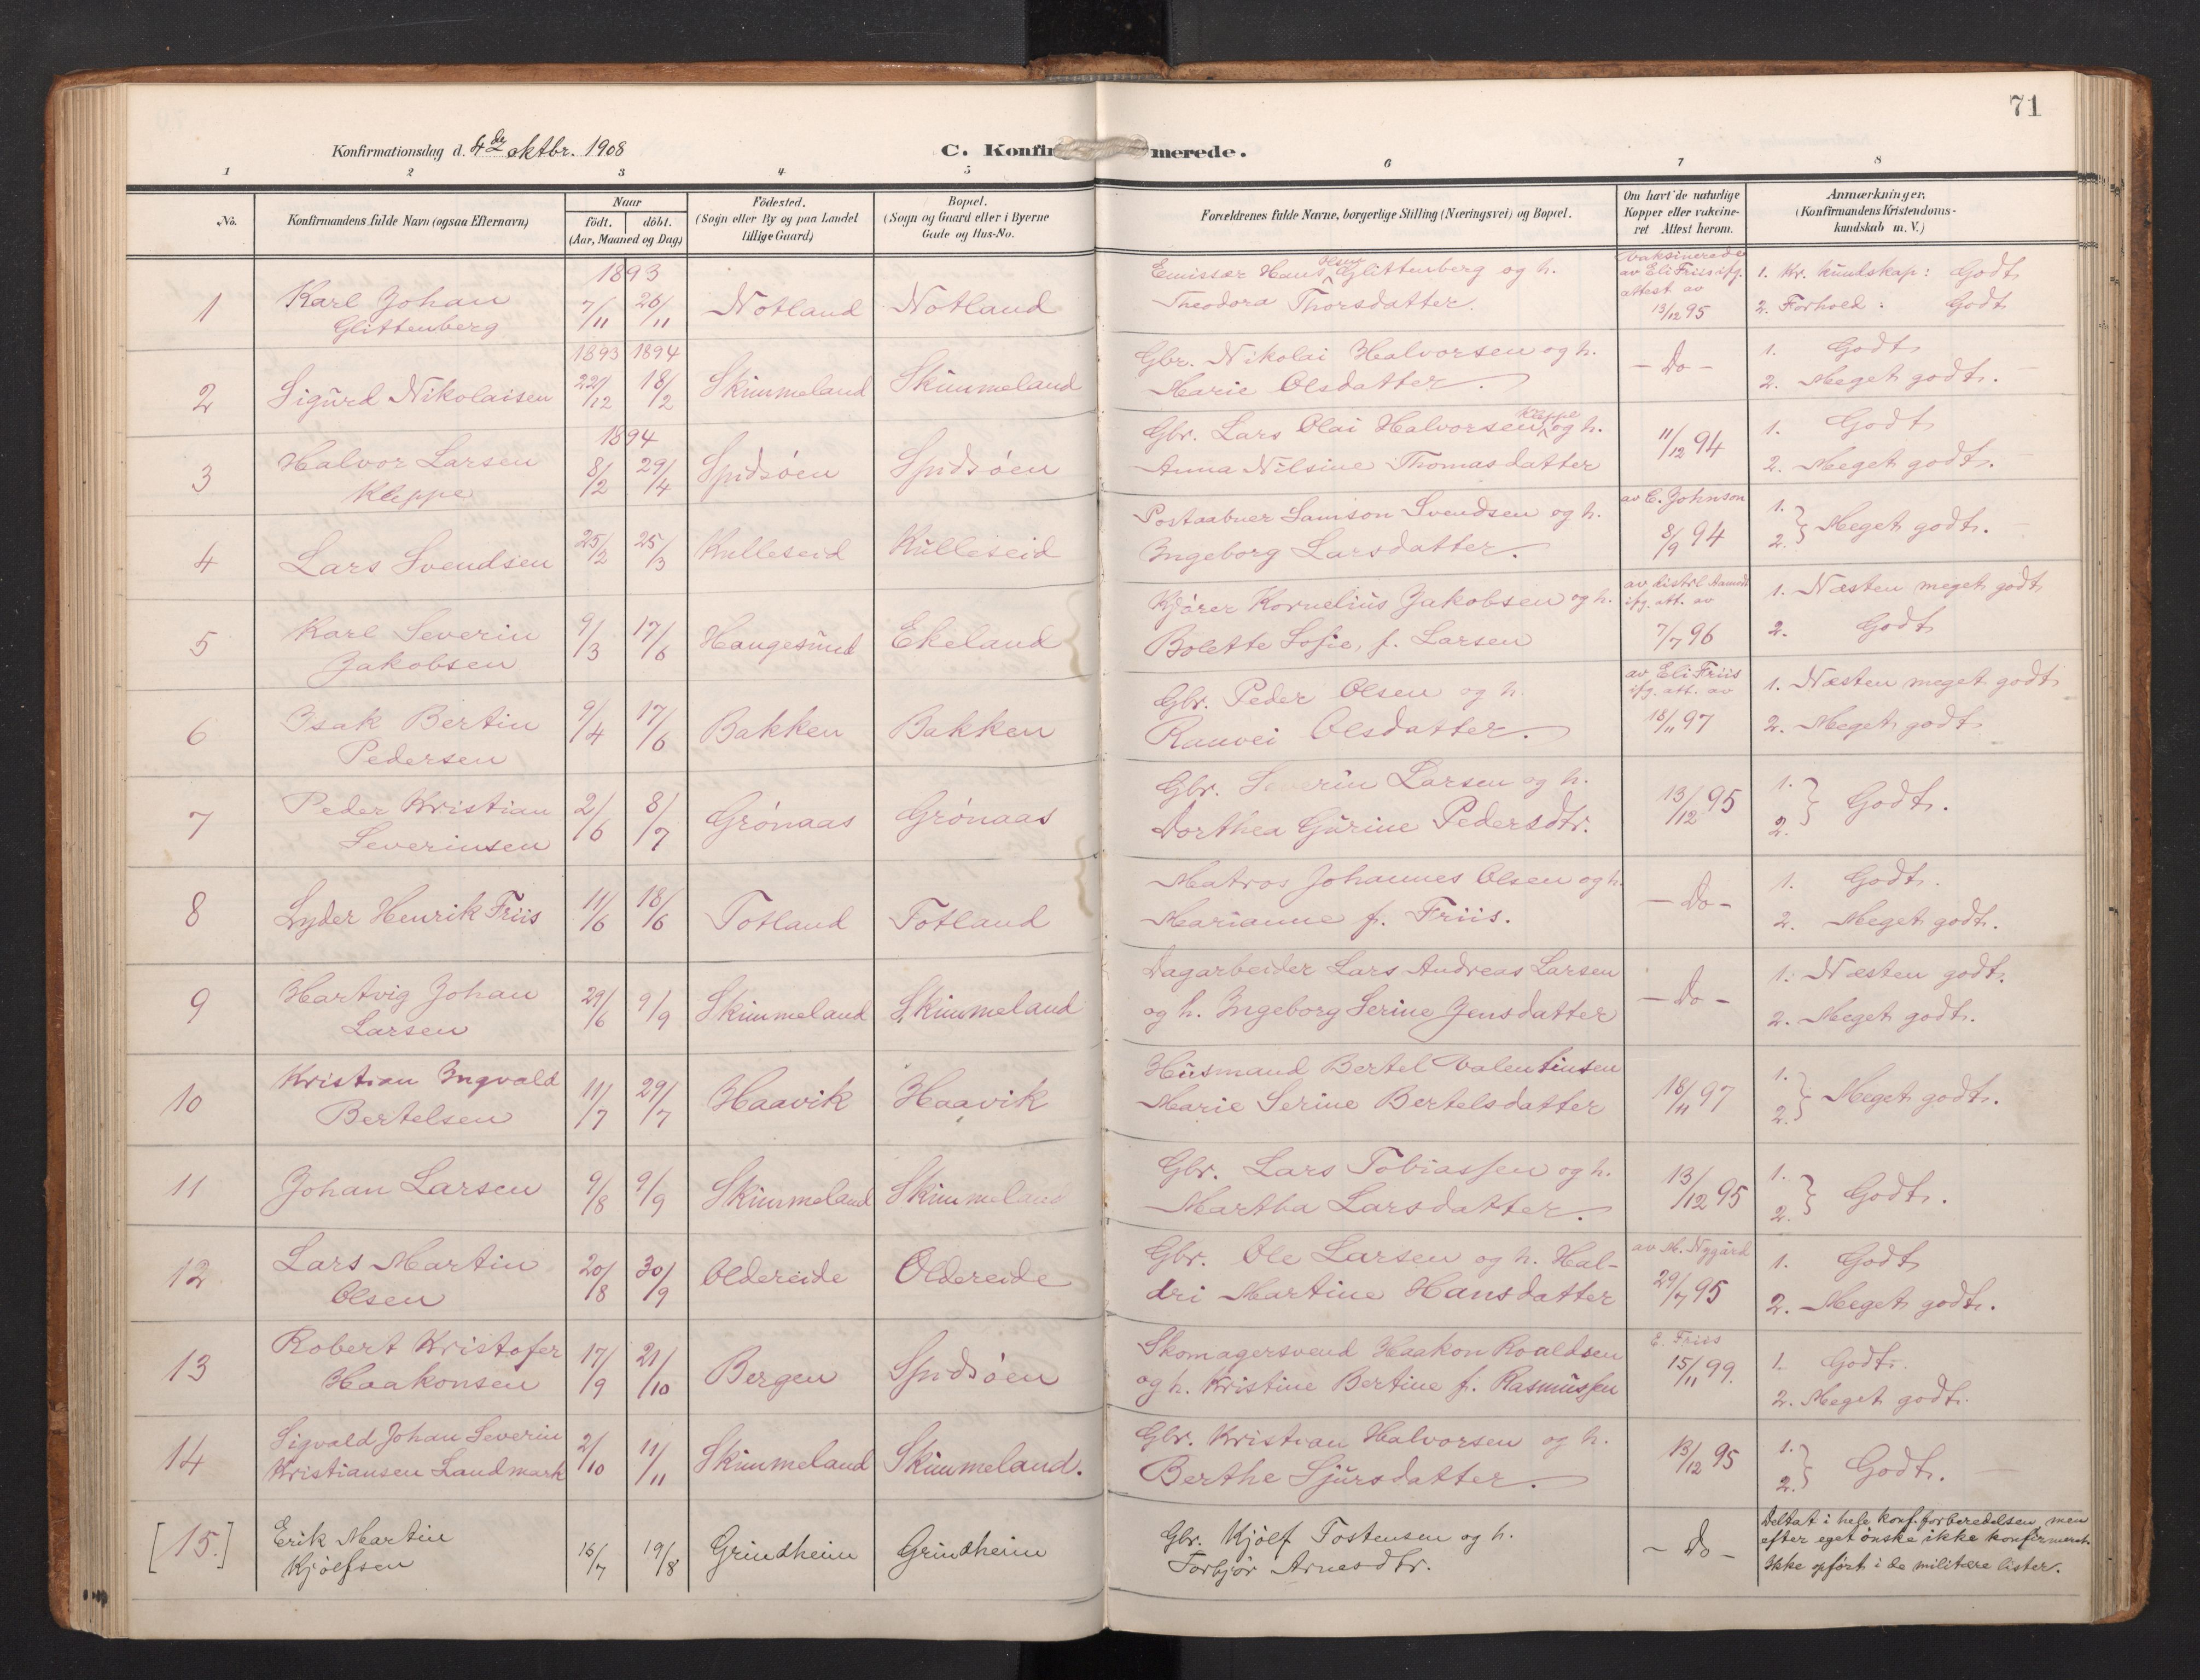 71
Konfirmationsdag d. 4de oktbr. 1908
C. Konfir merede.
1 2 3 4 5 6 7 8
No.
Konfirmandens fulde Navn (ogsaa Efternavn)
Naar
födt. döbt.
(Aar, Maaned og Dag)
Födested.
(Sogn eller By og paa Landet
tillige Gaard)
Bopæl.
(Sogn og Gaard eller i Byerne
Gade og Hus-No.
Forældrenes fulde Navne, borgerlige Stilling (Næringsvei) og Bopæl.
Om havt de naturlige
Kopper eller vakcine-
ret Attest herom.
Anmærkninger,
(Konfirmandens Kristendoms-
kundskab m. V.)
1
Karl Johan
Glittenberg
1893
7/11 26/11
Notland Notland
Emissær Hans Olsen Glittenberg og h.
Theodora Thorsdatter.
Vaksinerede
av Eli Friis ifg.
attest av
13/12 95
1. Kr. kundskap: Godt
2. Forhold: Godt
2
Sigurd Nikolaisen
1893 1894
22/12 18/2
Skimmeland Skimmeland
Gbr. Nikolai Halvorsen og h.
Marie Olsdatter.
- Do -
1. Godt
2. Meget godt.
3
Halvor Larsen
Kleppe
1894
8/2 29/4
Spidsöen Spidsöen
Gbr. Lars Olai Halvorsen Kleppe og h.
Anna Nilsine Thomasdatter
11/12 94
1. Godt
2. Meget godt.
4
Lars Svendsen
25/2 25/3
Kulleseid Kulleseid
Postaabner Samson Svendsen og h.
Ingeborg Larsdatter.
av C. Johnson
8/9 94
1.
2. } Meget godt.
5
Karl Severin
Jakobsen
9/3 17/6
Haugesund Ekeland
Kjörer Kornelius Jakobsen og h.
Bolette Sofie, f. Larsen
av distrl.
ifg. att. av
7/7 96
1. Næsten meget godt
2. Godt
6
Isak Bertin
Pedersen
9/4 17/6
Bakken Bakken
Gbr. Peder Olsen og h.
Ranvei Olsdatter.
av Eli Friis
ifg. att. av
18/11 97
1. Næsten meget godt
2. Meget godt
7
Peder Kristian
Severinsen
2/6 8/7
Grönaas Grönaas
Gbr. Severin Larsen og h.
Dorthea Gurine Pedersdtr.
13/12 95
1.
2. } Godt.
8
Lyder Henrik Friis
11/6 18/6
Totland Totland
Matros Johannes Olsen og h.
Marianne f. Friis.
- Do -
1. Godt.
2. Meget godt.
9
Hartvig Johan
Larsen
29/6 9/9
Skimmeland Skimmeland
Dagarbeider Lars Andreas Larsen
og h. Ingeborg Serine Jensdatter
- Do -
1. Næsten godt.
2. Meget godt.
10
Kristian Ingvald
Bertelsen
11/7 29/7
Haavik Haavik
Husmand Bertel Valentinsen
Marie Serine Bertelsdatter
18/11 97
1.
2. } Meget godt.
11
Johan Larsen
9/8 9/9
Skimmeland Skimmeland
Gbr. Lars Tobiassen og h.
Martha Larsdatter.
13/12 95
1.
2. } Godt.
12
Lars Martin
Olsen
20/8 30/9
Oldereide Oldereide
Gbr. Ole Larsen og h. Hal-
dri Martine Hansdatter
av M. Nygård
29/7 95
1. Godt
2. Meget godt.
13
Robert Kristofer
Haakonsen
17/9 21/10
Bergen Spidsöen
Skomagersvend Haakon Roaldsen
og h. Kristine Bertine f. Rasmussen
E. Friis
15/11 99.
1. Godt.
2. Meget godt.
14
Sigvald Johan Severin
Kristiansen Landmark
2/10 11/11
Skimmeland Skimmeland.
Gbr. Kristian Halvorsen og h.
Berthe Sjursdatter.
13/12 95
1.
2. } Godt.
[15.]
Erik Martin
Kjölfsen
15/7 19/8
Grindheim Grindheim
Gbr. Kjölf Tostensen og h.
Torbjör Arnesdtr.
- Do -
Deltat i hele konf. forberedelsen, men
efter eget önske ikke konfirmeret.
Ikke opfört i de militære lister.